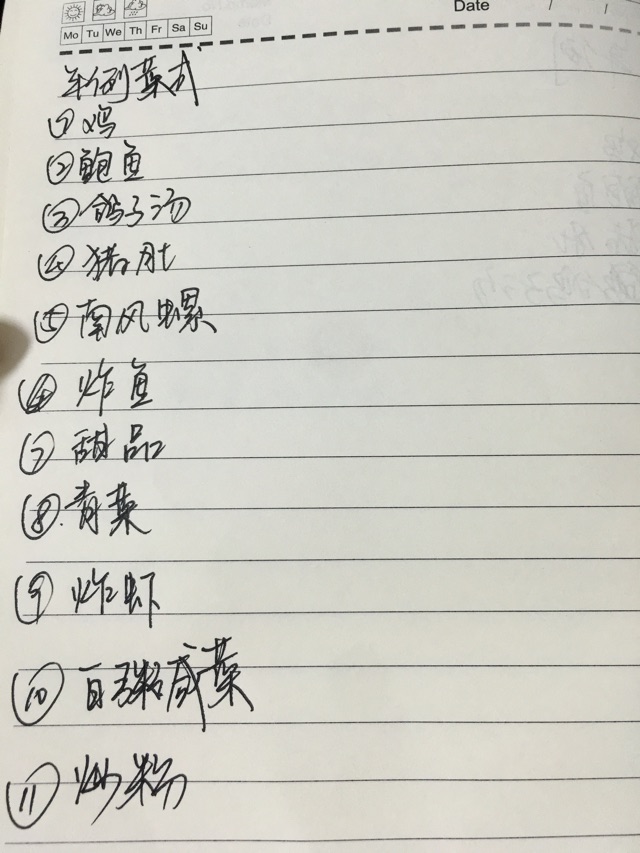 Date / /
Mo Tu We Th Fr Sa Su
年例菜式
①鸡
②鲍鱼
③鸽子汤
④猪肚
⑤南风螺
⑥炸鱼
⑦甜品
⑧.青菜
⑨炸虾
⑩咸菜
⑪炒粉